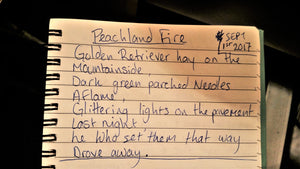 Peachland Fire
# SEPT
1st 2017
Golden Retriever hay on the
Mountainside
Dark green parched Needles
Aflame,
Glittering lights on the pavement
Last night
he who set them that way
Drove away.